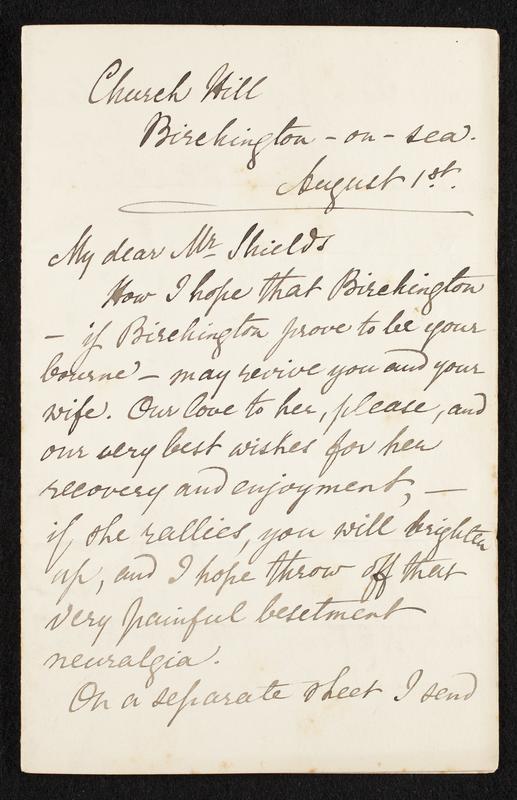 Church Hill
Birchington - on - sea.
August 1st.
My dear Mr. Shields
How I hope that Birchington
- if Birchington prove to be your
bourne - may revive you and your
wife. Our love to her, please, and
our very best wishes for her
recovery and enjoyment, -
if she rallies, you will brighten
up, and I hope throw off that
very painful besetment
neuralgia.
On a separate sheet I send